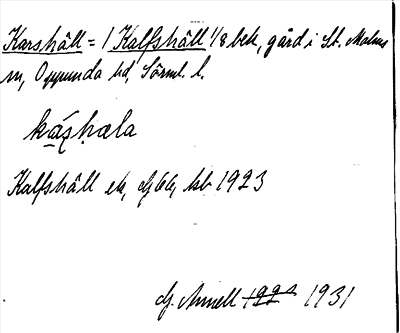 Karshäll = / Kalfshäll 1/8 bek, gård i St. Malms
sn, Oppunda hd, Sörml. l.
káʂhæla
Kalfshäll ek, dj 66, kb 1923
dj. Arnell 1929 1931